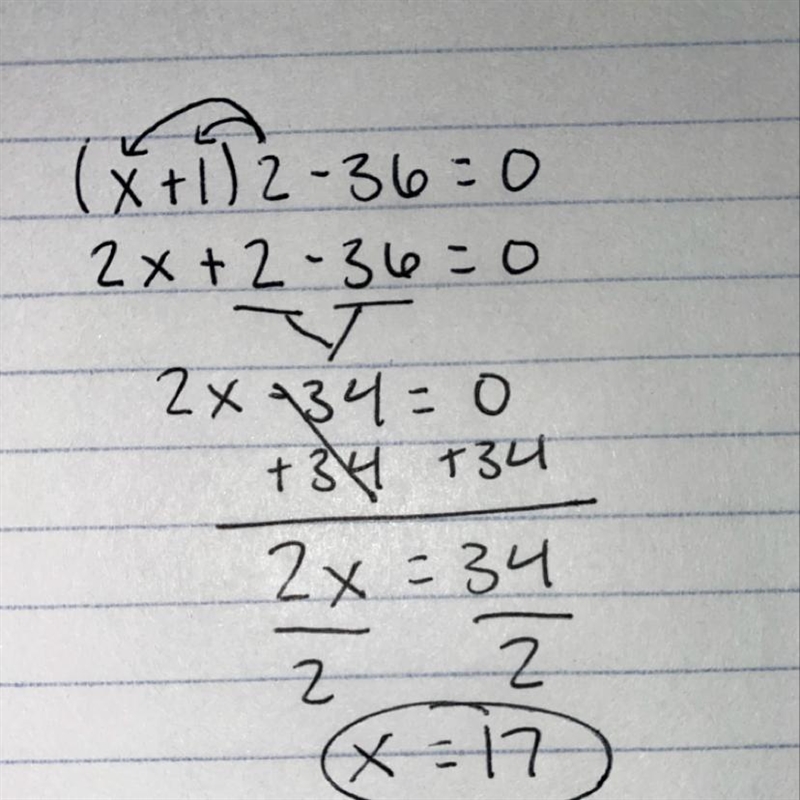 (x+1)2-36=0
2x+2-36=0
2x-34=0
+34 +34
2x=34
2 2
x=17